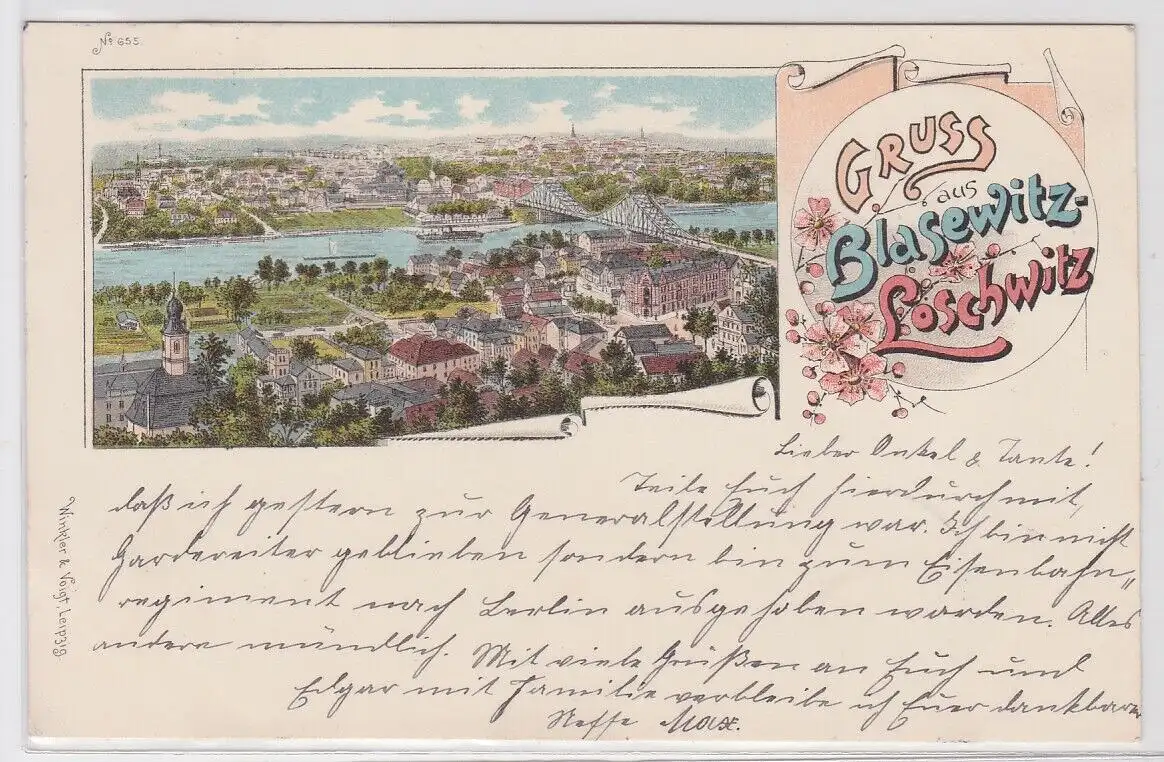 No 655.
GRUSS
aus
Blasewitz-
Loschwitz
Lieber Onkel & Tante!
Teile Euch hierdurch mit,
daß ich gestern zur Generalstellung war. Ich bin nicht
Gardereiter geblieben sondern bin zum Eisenbahn„
regiment nach Berlin ausgehoben worden. Alles
andere mündlich. Mit viele Grüßen an Euch und
Edgar mit Familie verbleibe ich Euer dankbarer
Neffe Max.
Winkler & Voigt, Leipzig.